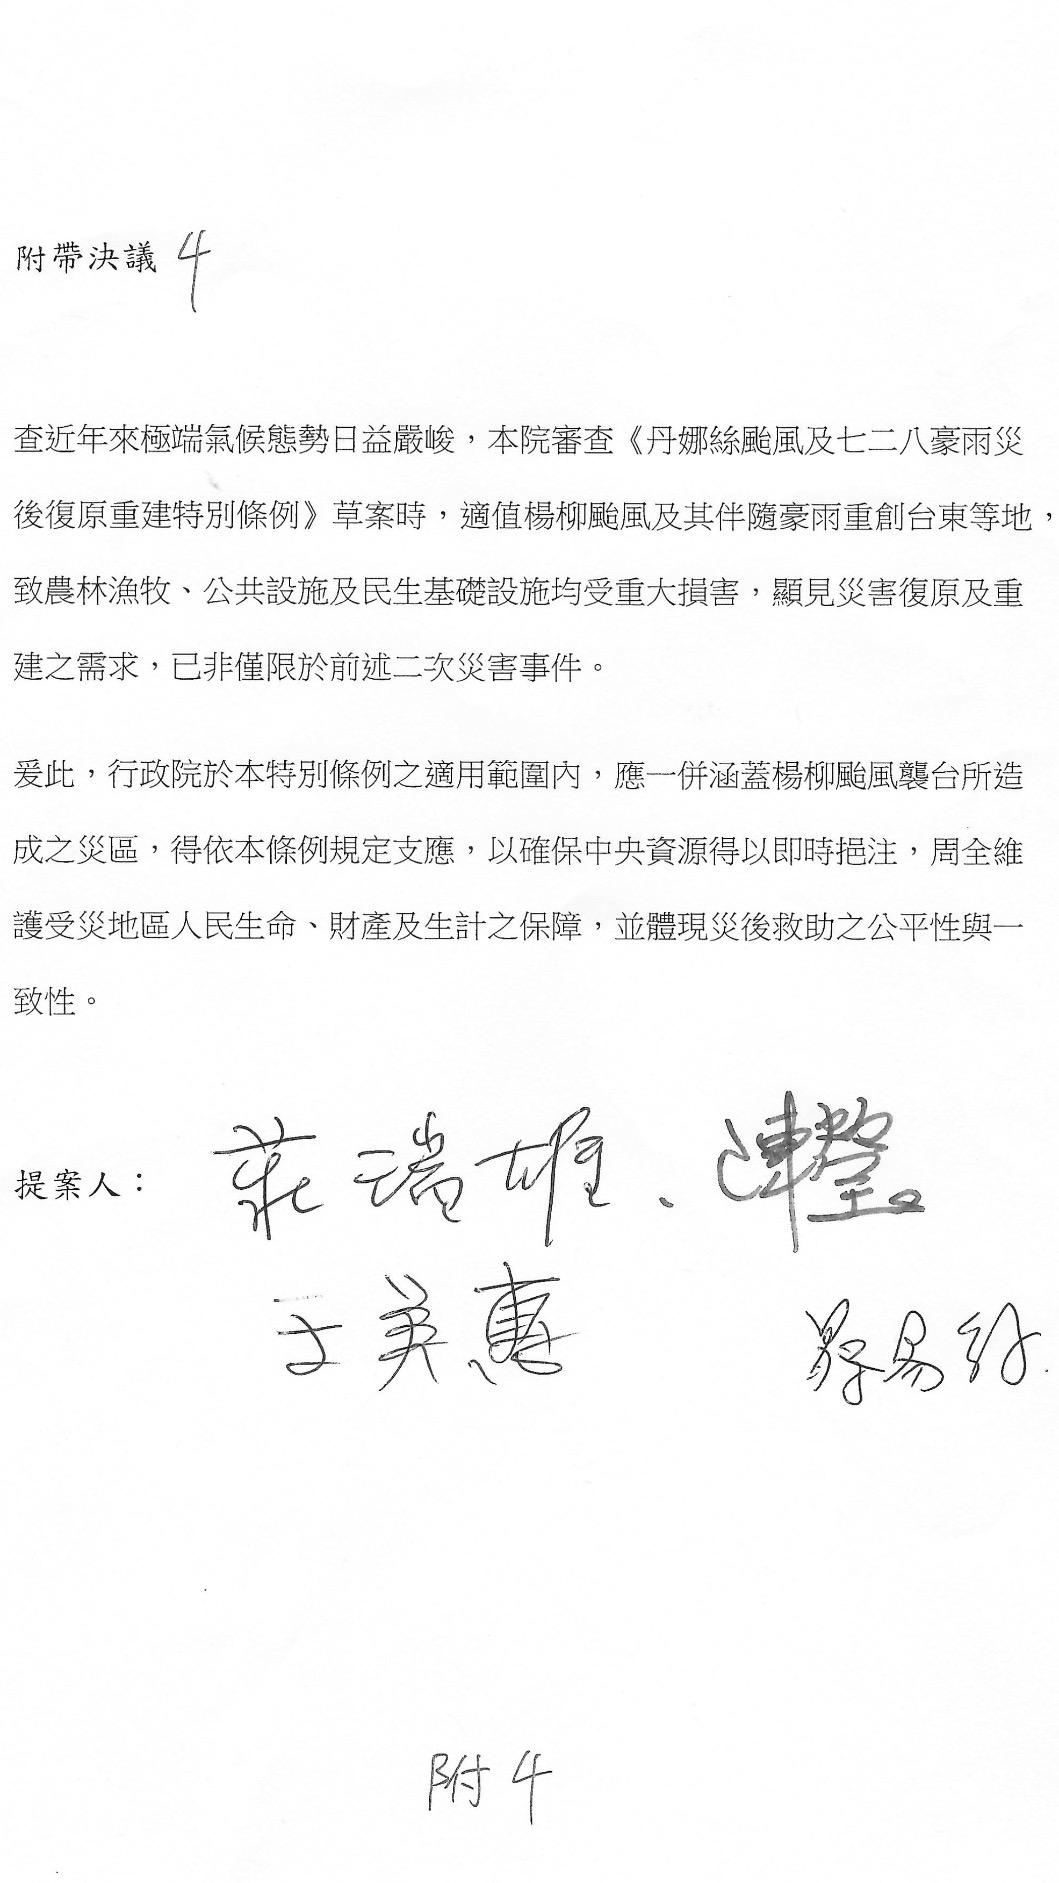 附帶決議 4
查近年來極端氣候態勢日益嚴峻，本院審查《丹娜絲颱風及七二八豪雨災
後復原重建特別條例》草案時，適值楊柳颱風及其伴隨豪雨重創台東等地，
致農林漁牧、公共設施及民生基礎設施均受重大損害，顯見災害復原及重
建之需求，已非僅限於前述二次災害事件。
爰此，行政院於本特別條例之適用範圍內，應一併涵蓋楊柳颱風襲台所造
成之災區，得依本條例規定支應，以確保中央資源得以即時挹注，周全維
護受災地區人民生命、財產及生計之保障，並體現災後救助之公平性與一
致性。
提案人： 莊瑞雄、陳瑩
王美惠 蔡易餘
附4